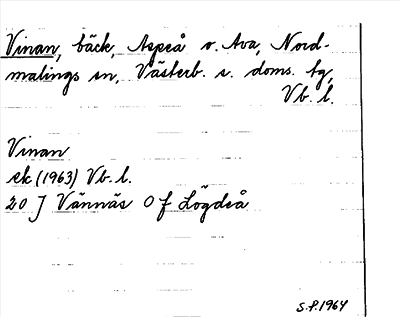 Vinan, bäck, Aspeå v. Ava, Nord-
malings sn, Västerb. s. doms. tg,
Vb. l.
Vinan
ek (1963) Vb. l.
20 J Vännäs O f Lögdeå
S.P. 1964